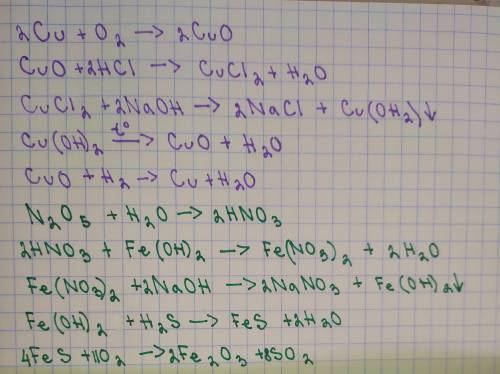 2Cu + O₂ —> 2CuO
CuO + 2HCl —> CuCl₂ + H₂O
CuCl₂ + 2NaOH —> 2NaCl + Cu(OH₂)↓
Cu(OH)₂ —t°—> CuO + H₂O
CuO + H₂ —> Cu + H₂O
N₂O₅ + H₂O —> 2HNO₃
2HNO₃ + Fe(OH)₂ —> Fe(NO₃)₂ + 2H₂O
Fe(NO₃)₂ + 2NaOH —> 2NaNO₃ + Fe(OH)₂↓
Fe(OH)₂ + H₂S —> FeS + 2H₂O
4FeS + 11O₂ —> 2Fe₂O₃ + 8SO₂